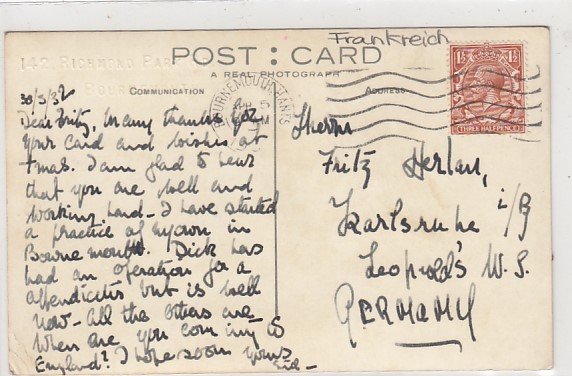 Frankreich
142 RICHMOND PAR
POST : CARD
A REAL PHOTOGRAPH
COMMUNICATION
ADDRESS
BOURNEMOUTH HANTS
THREE HALFPENCE
30/3/32
Dear Fritz, many thanks for
your card and wishes at
Xmas. I am glad to hear
that you are well and
working hard - I have started
a practice of my own in
Bournemouth. Dick has
had an operation for a
appendicitis but is well
now - All the others are -
When are you coming to
England? I hope soon yours
Sid -
Herrn
Fritz Herlan,
Karlsruhe i/B
Leopold's W. S.
GERMANY